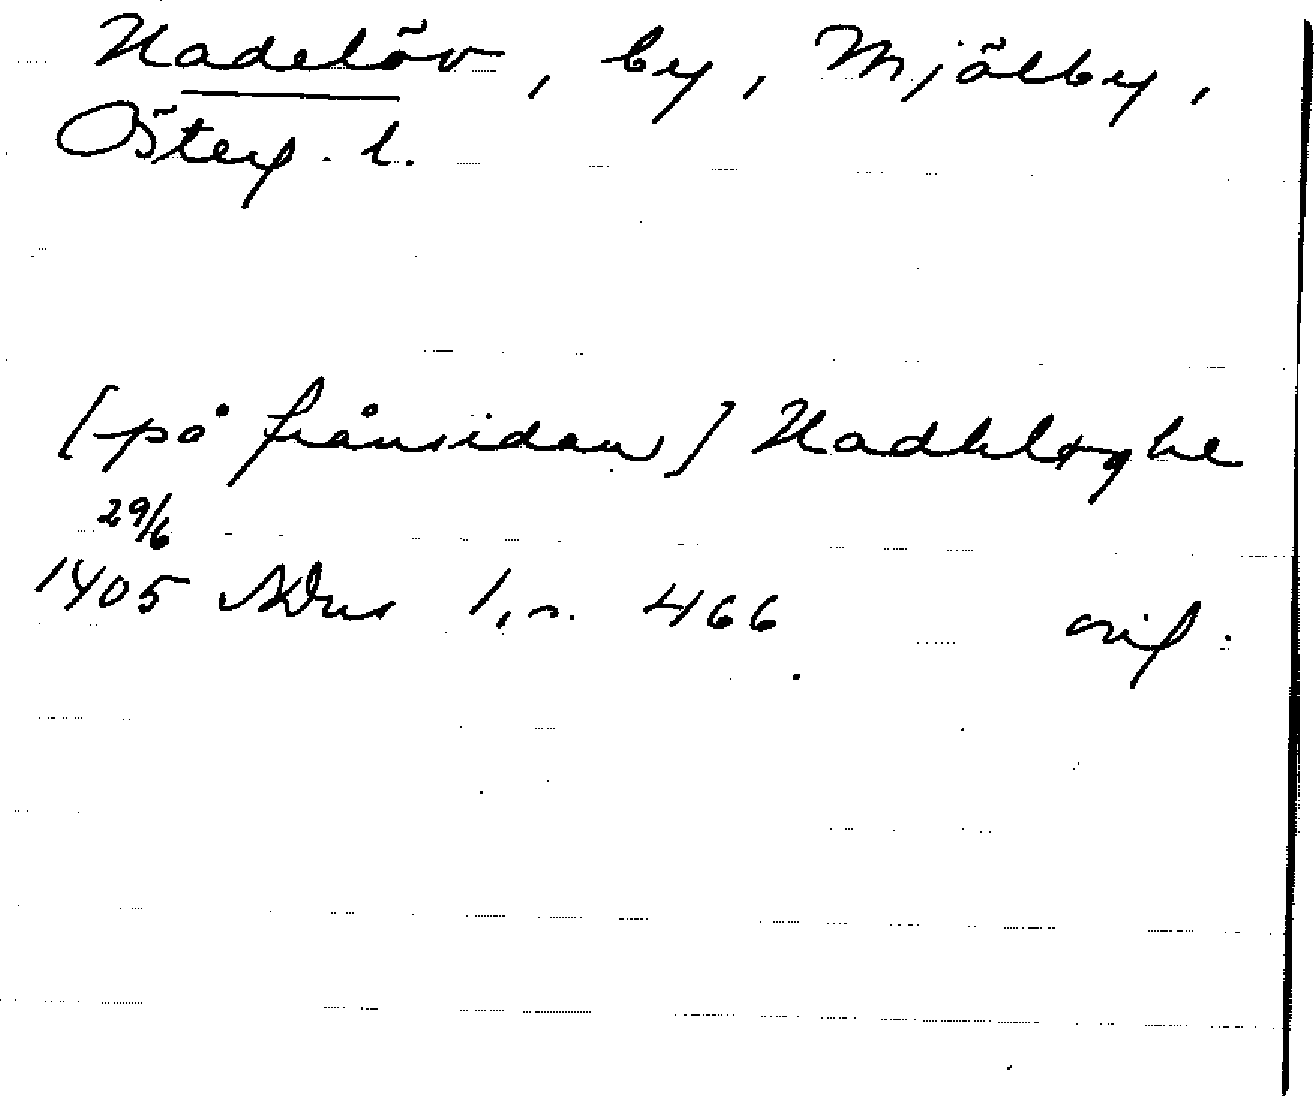 Hadelöv, by, Mjölby,
Österg. l.
[på frånsidan] Hadhløghe
29/6
1405 SDns 1, n. 466 orig.